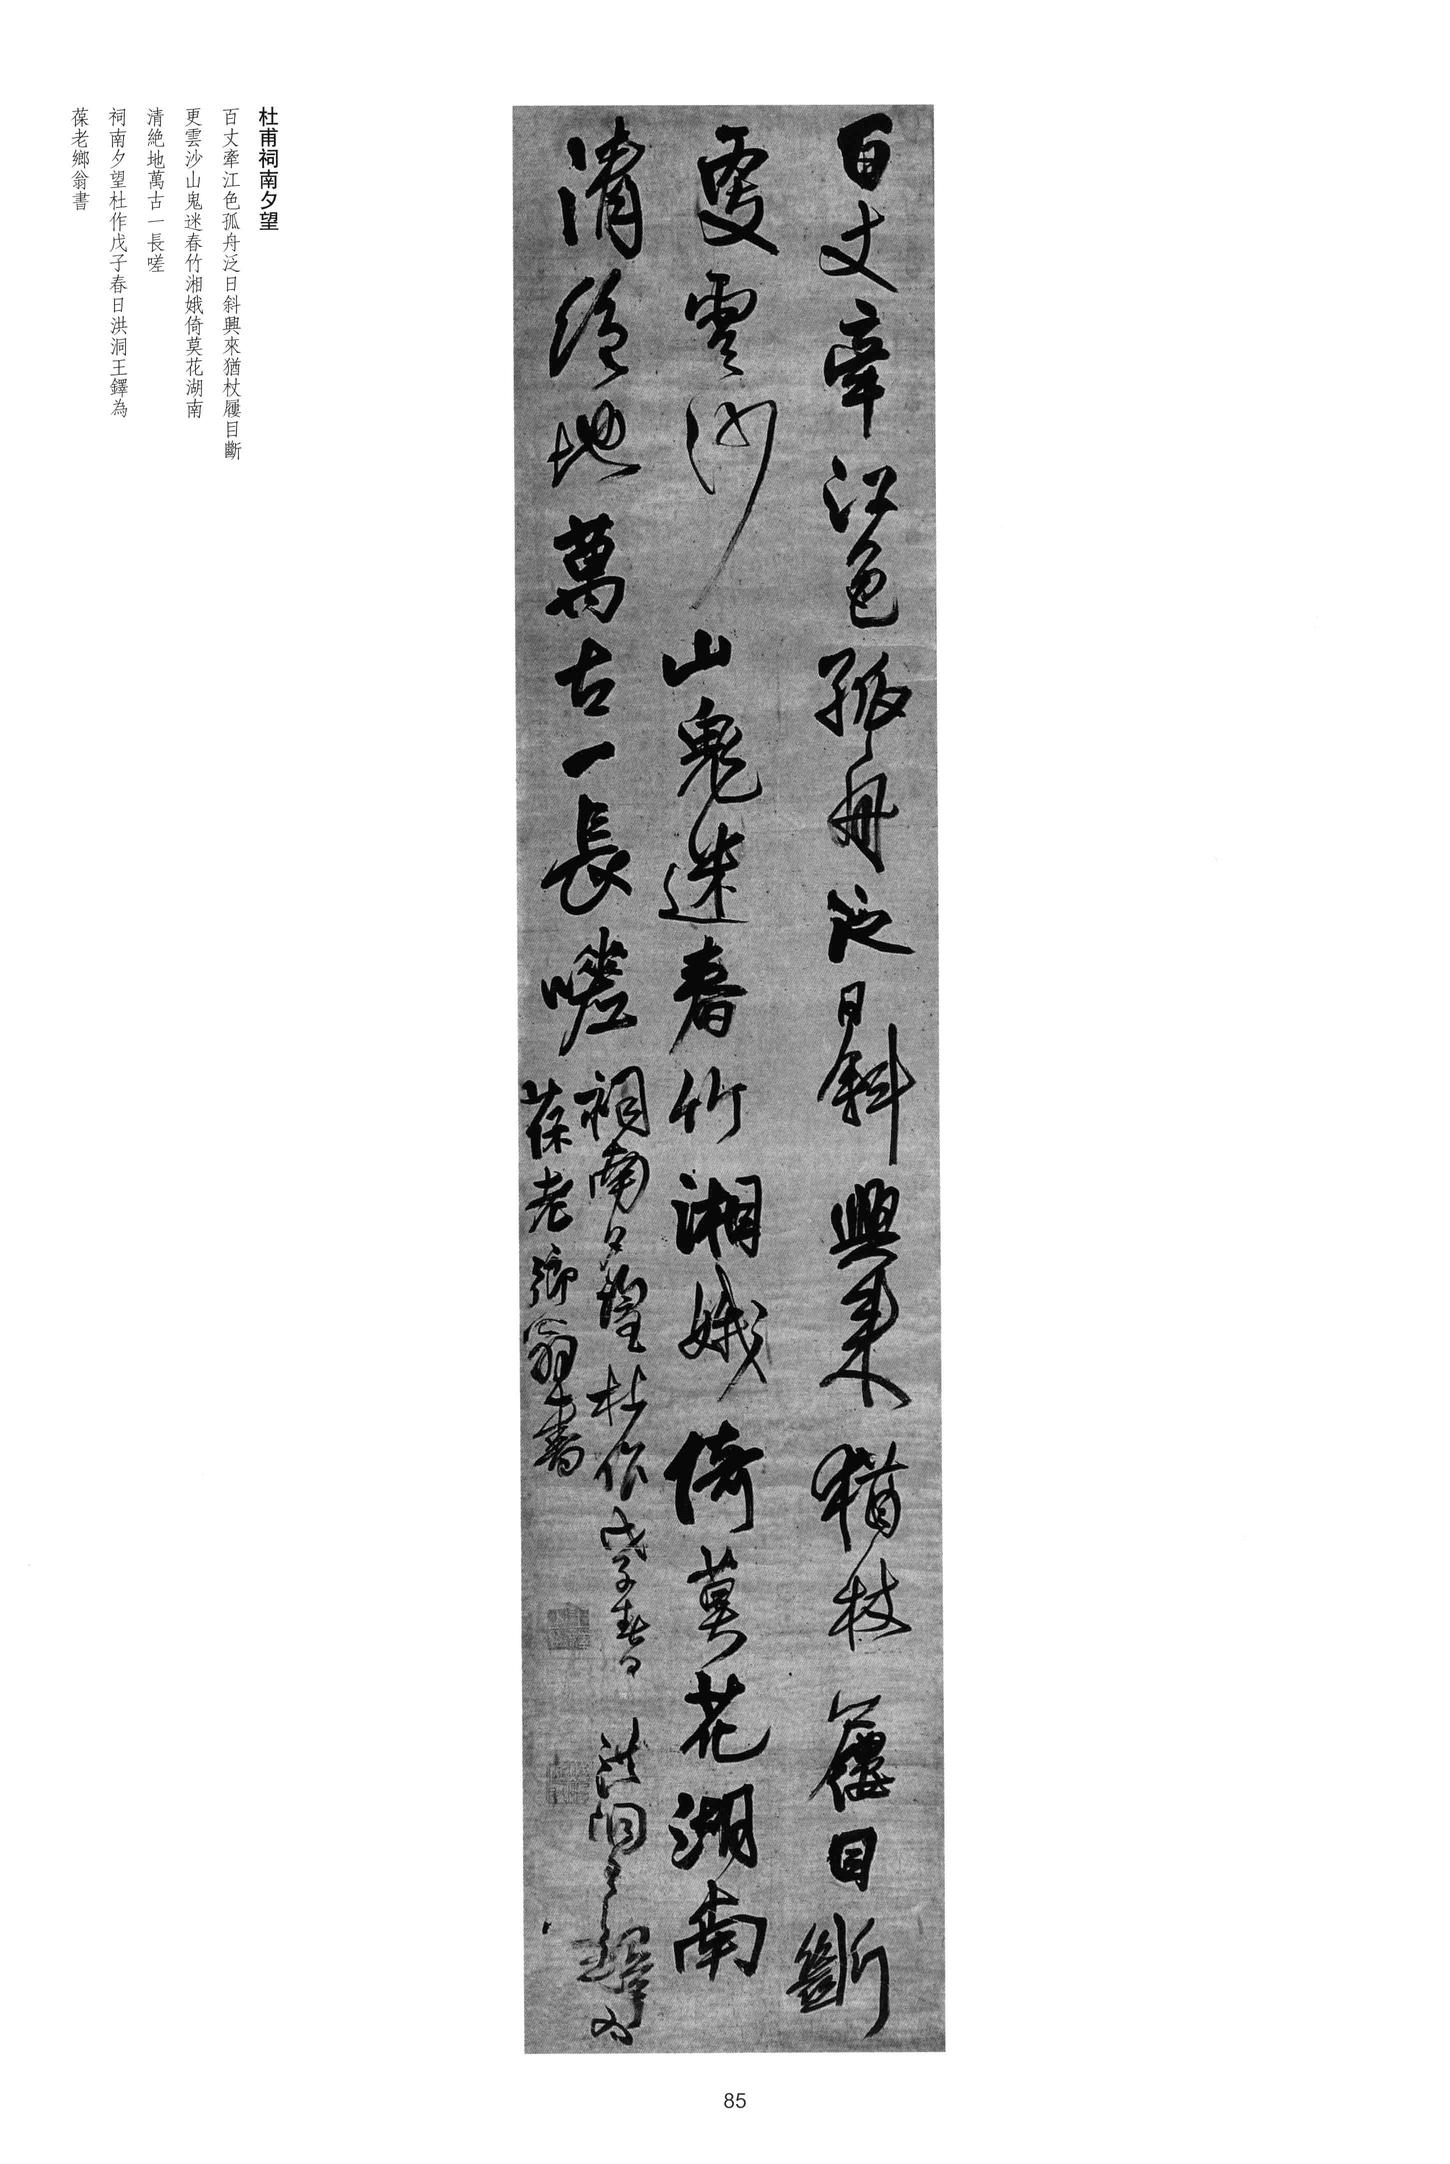 百丈牽江色孤舟泛日斜興來猶杖屨目斷
更雲沙山鬼迷春竹湘娥倚莫花湖南
清絶地萬古一長嗟
祠南夕望杜作戊子春日洪洞王鐸為
葆老鄉翁書
杜甫祠南夕望
百丈牽江色孤舟泛日斜興來猶杖屨目斷
更雲沙山鬼迷春竹湘娥倚莫花湖南
清絶地萬古一長嗟
祠南夕望杜作戊子春日洪洞王鐸為
葆老鄉翁書
85